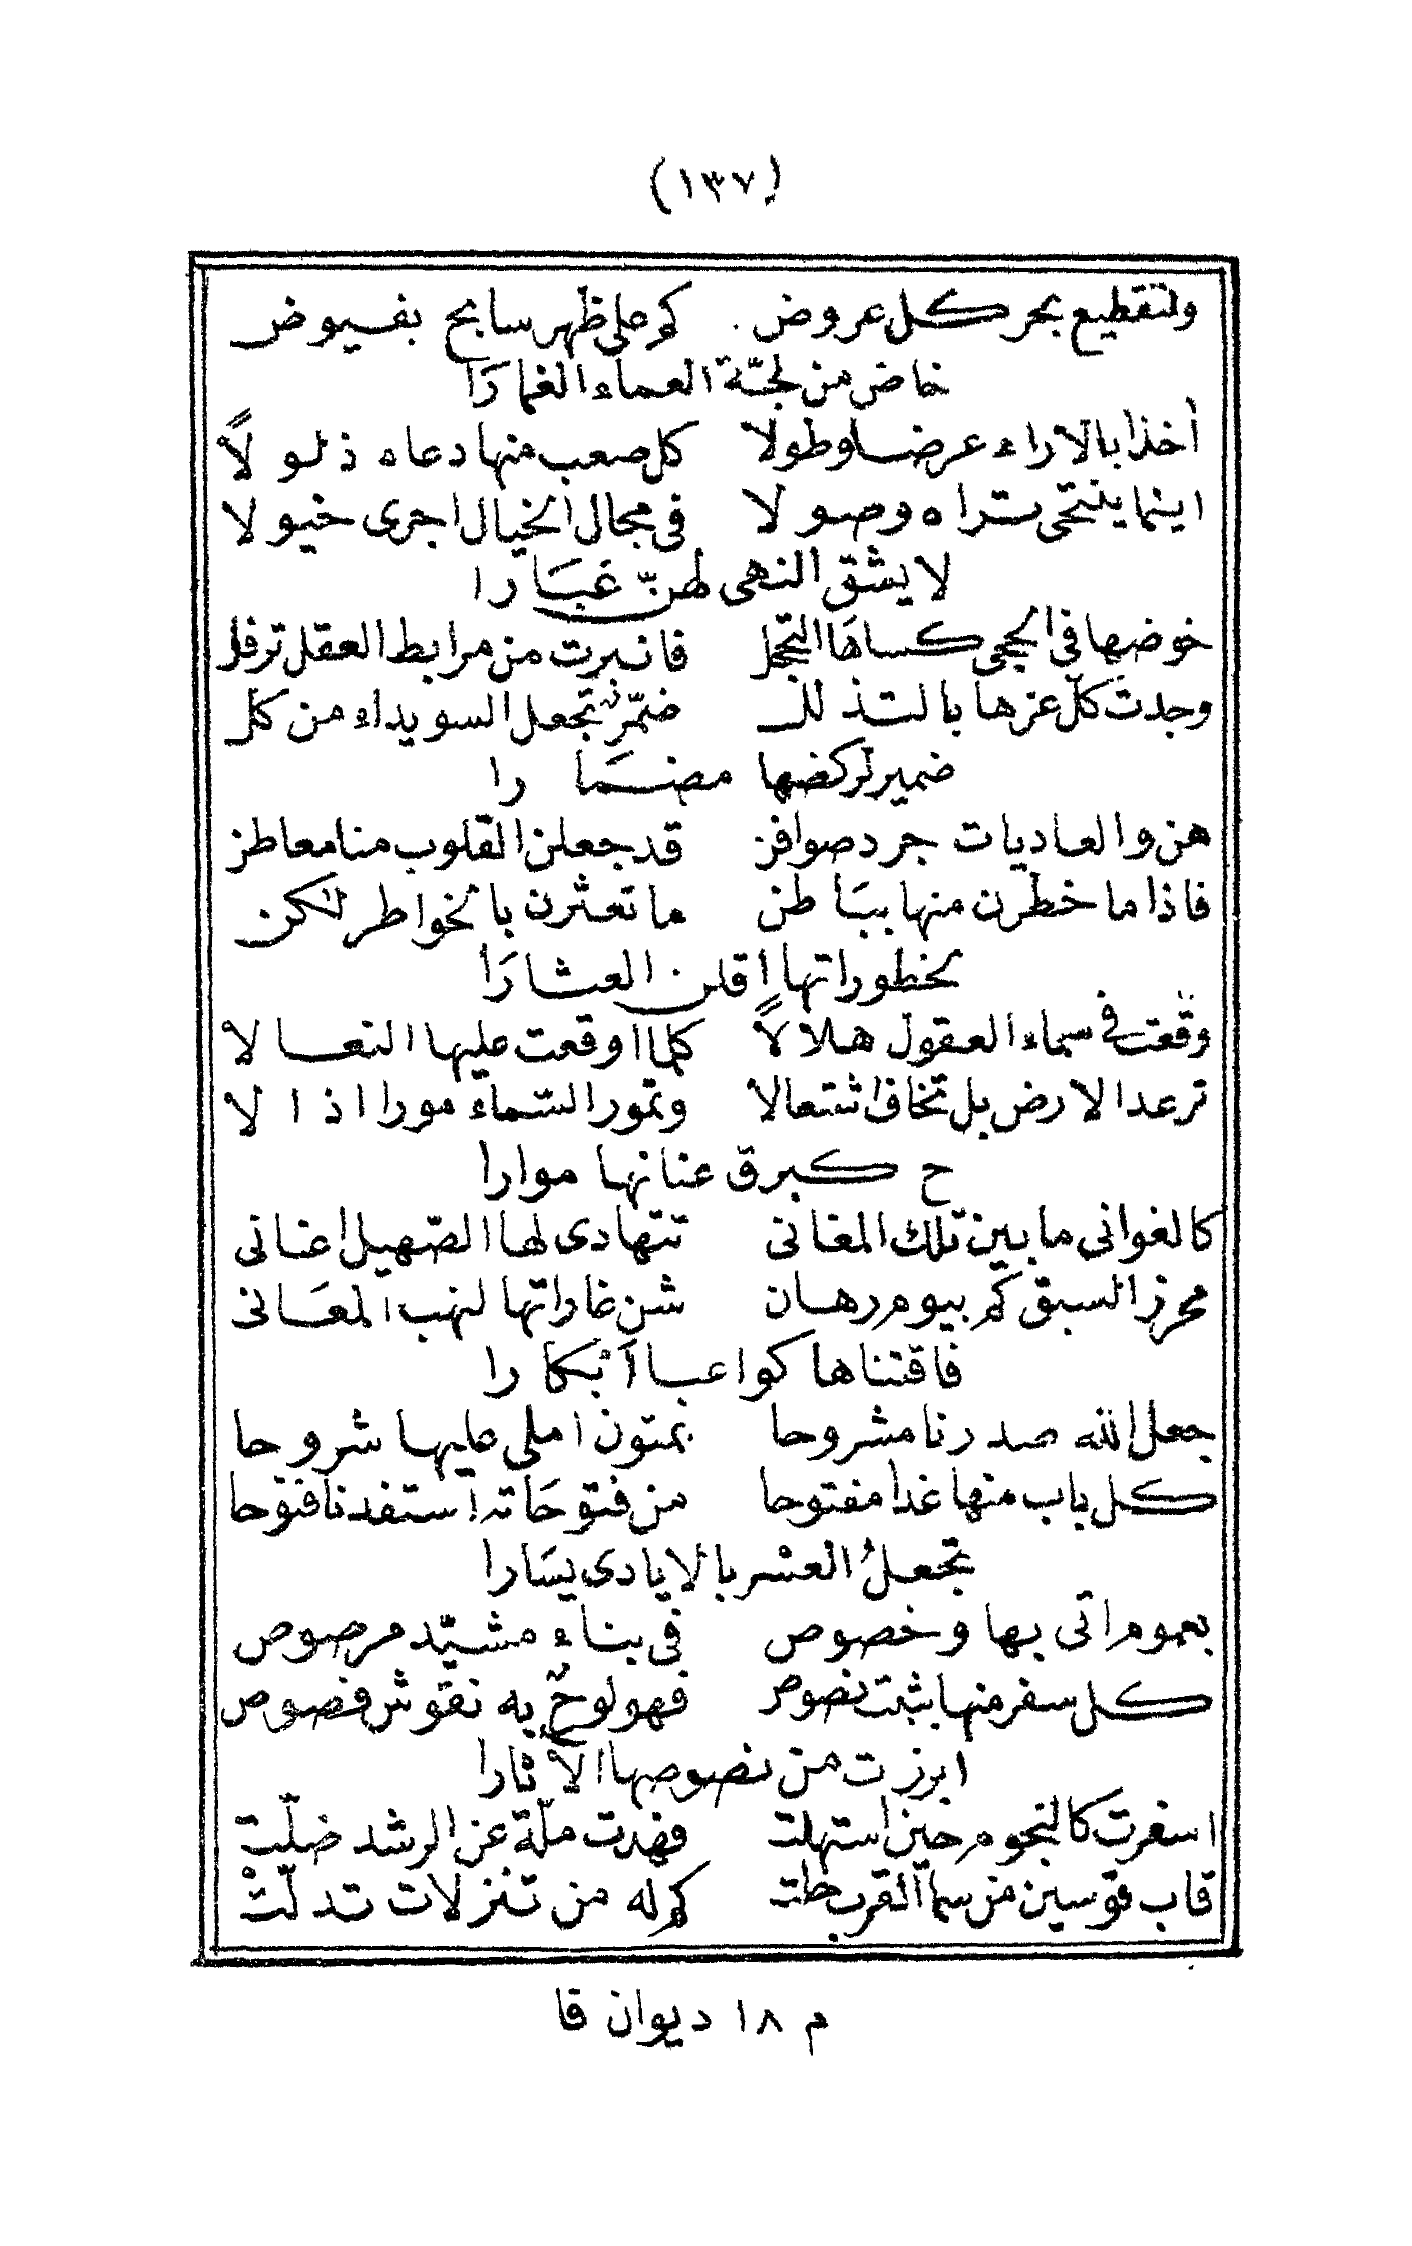 (١٣٧)
ولتقطيع بحر كل عروض كم على ظهر سابح بفيوض
خاض من لجّة العماء الغمارَا
أخذا بالاراء عرضا وطولا كل صعب منها دعاه ذلولاً
اينما ينتحى تراه وصولا فى مجال الخيال اجرى خيولا
لا يشق النهى لهنّ غبَارا
خوضها فى الحجى كساهَا التجمل فانبرت من مرابط العقل ترفل
وجدتَ كلّ عزها بالتذلل ضمّرٌ تجعل السويداء من كل
ضمير لركضها مضمَارا
هن والعاديات جرد صوافن قد جعلن القلوب منا معاطن
فاذا ما خطرن منها ببَاطن ما تعثرن بالخواطر لكن
بخطوراتها اقلن العثارَا
وقعت فى سماء العقول هلالاً كلما اوقعت عليها النعالا
ترعد الارض بل تخاف اشتعالا وتمور السّماء مورا اذا لا
ح كبرق عنانها موارا
كالغوانى ما بين تلك المغانى تتهادى لها الصّهيل اغانى
محرز السبق كم بيوم رهان شن غاراتها لنهب المعَانى
فاقتناها كواعبا اَبْكارا
جعل الله صدرنا مشروحا بمتون املى عليها شروحا
كل باب منها غدا مفتوحا من فتوحَاته استفدنا فتوحا
تجعلُ العسْر بالايادى يسَارا
بعموم اتى بها وخصوص فى بناء مشيّد مرصوص
كل سفر منها بثبت نصوص فهو لوحٌ به نقوش فصوص
ابرزت من نصوصها الآثارا
اسفرت كالنجوم حين استهلت فهدت ملّة عن الرشد ضلّت
قاب قوسين من سمآ القرب حلت كم له من تنزلات تدلّتْ
م ١٨ ديوان قا